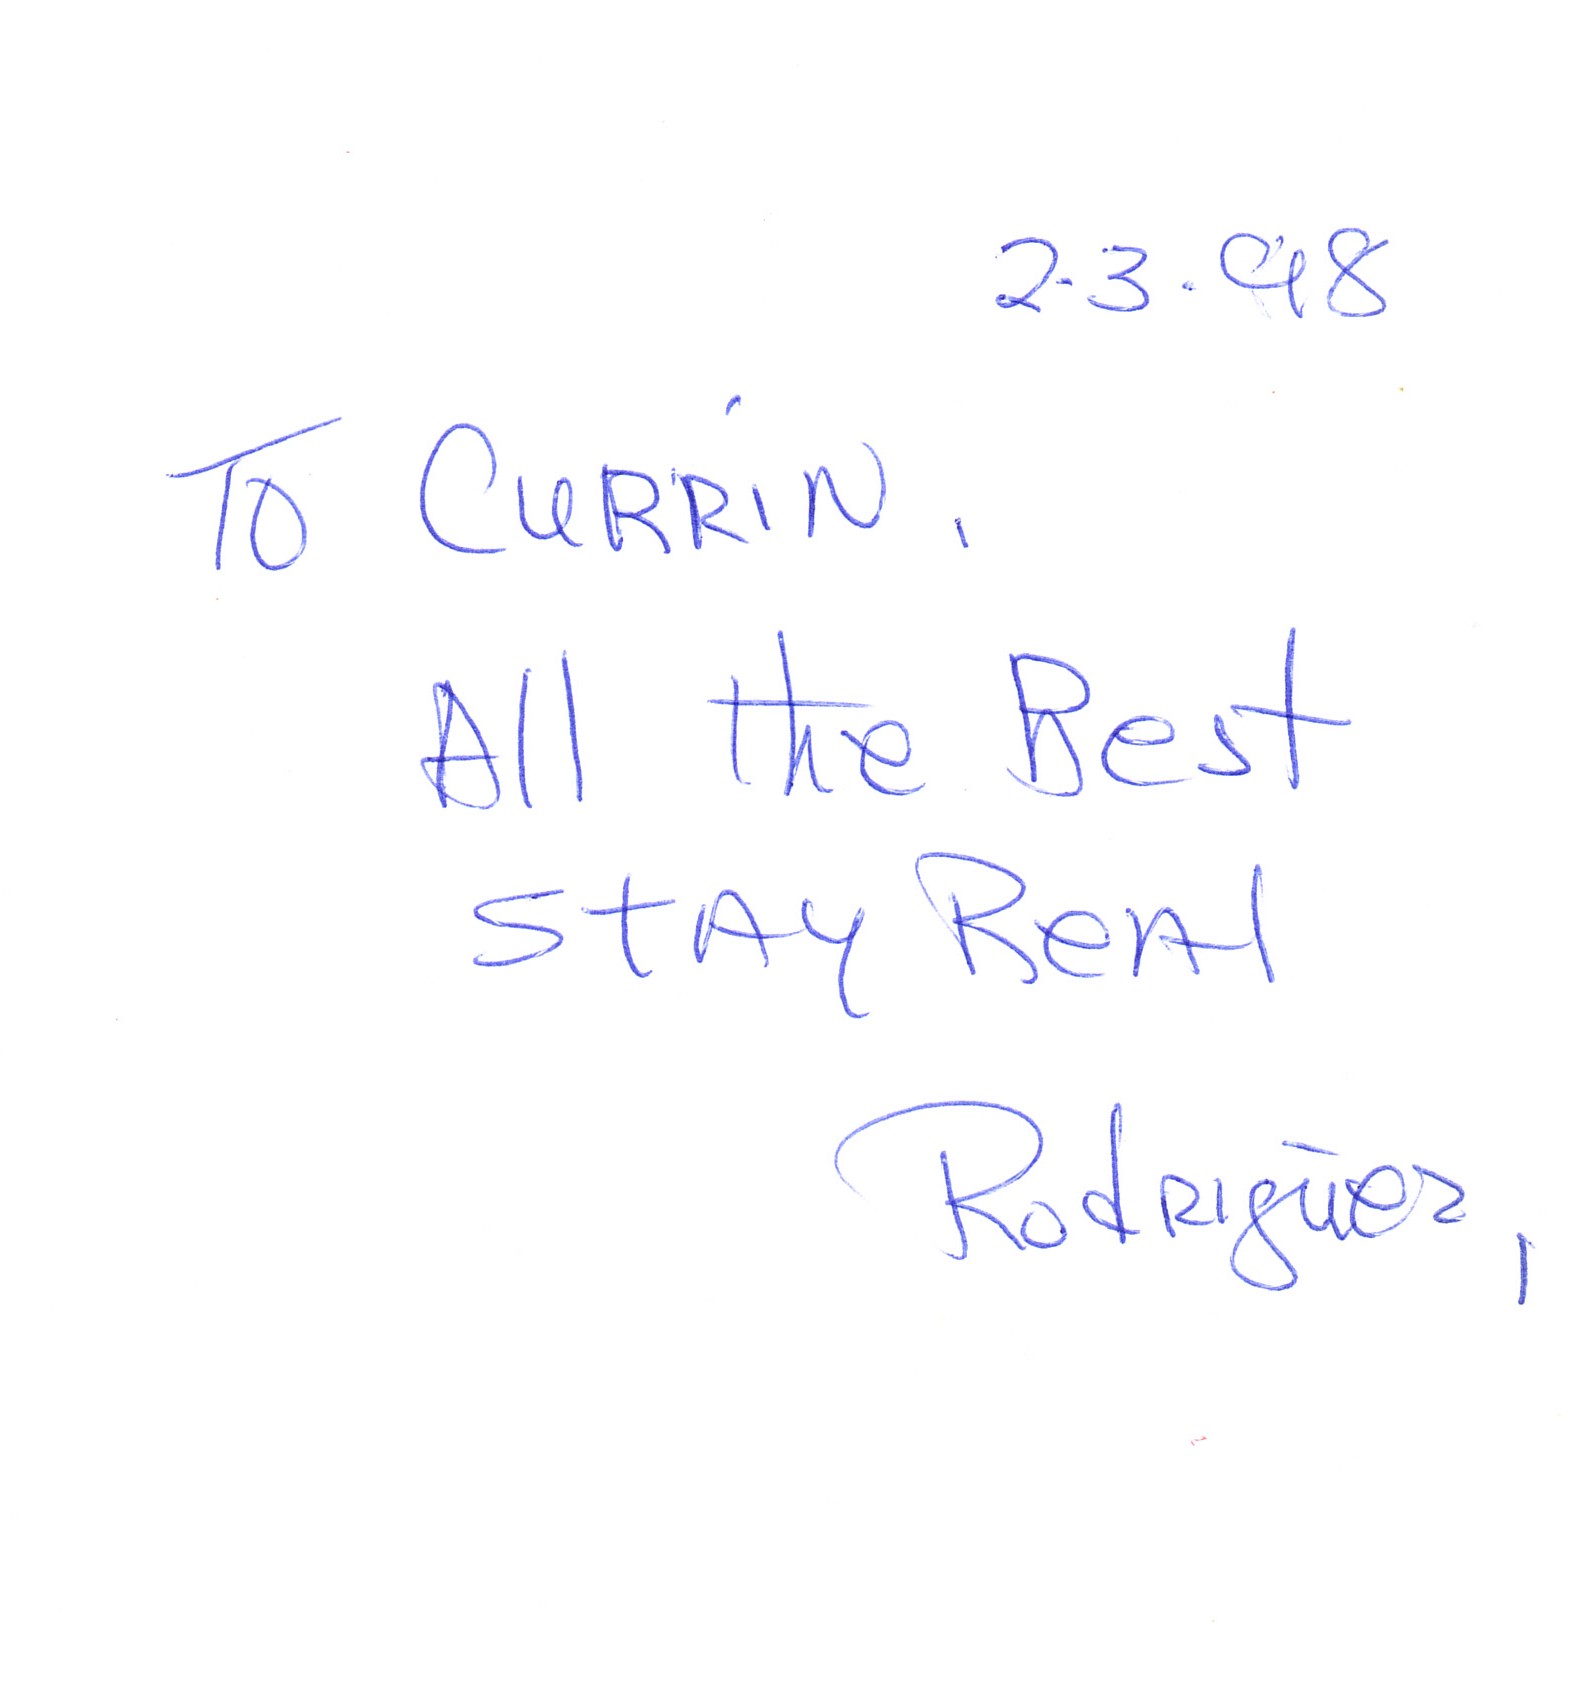 2.3.98
To Currin,
All the Best
Stay Real
Rodriguez,